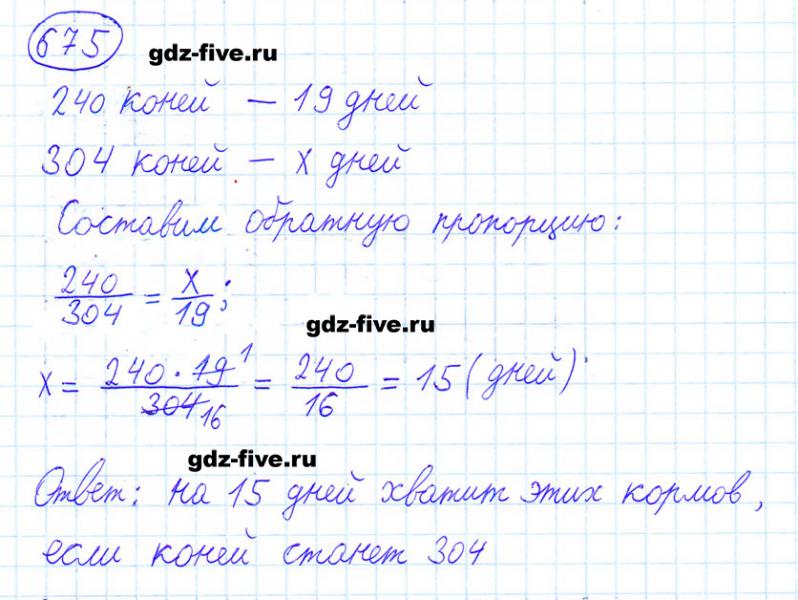 675
gdz-five.ru
240 коней — 19 дней
304 коней — x дней
Составим обратную пропорцию:
240/304 = x/19;
gdz-five.ru
x = 240 · 19 1/304 16 = 240/16 = 15 (дней)
gdz-five.ru
Ответ: на 15 дней хватит этих кормов,
если коней станет 304